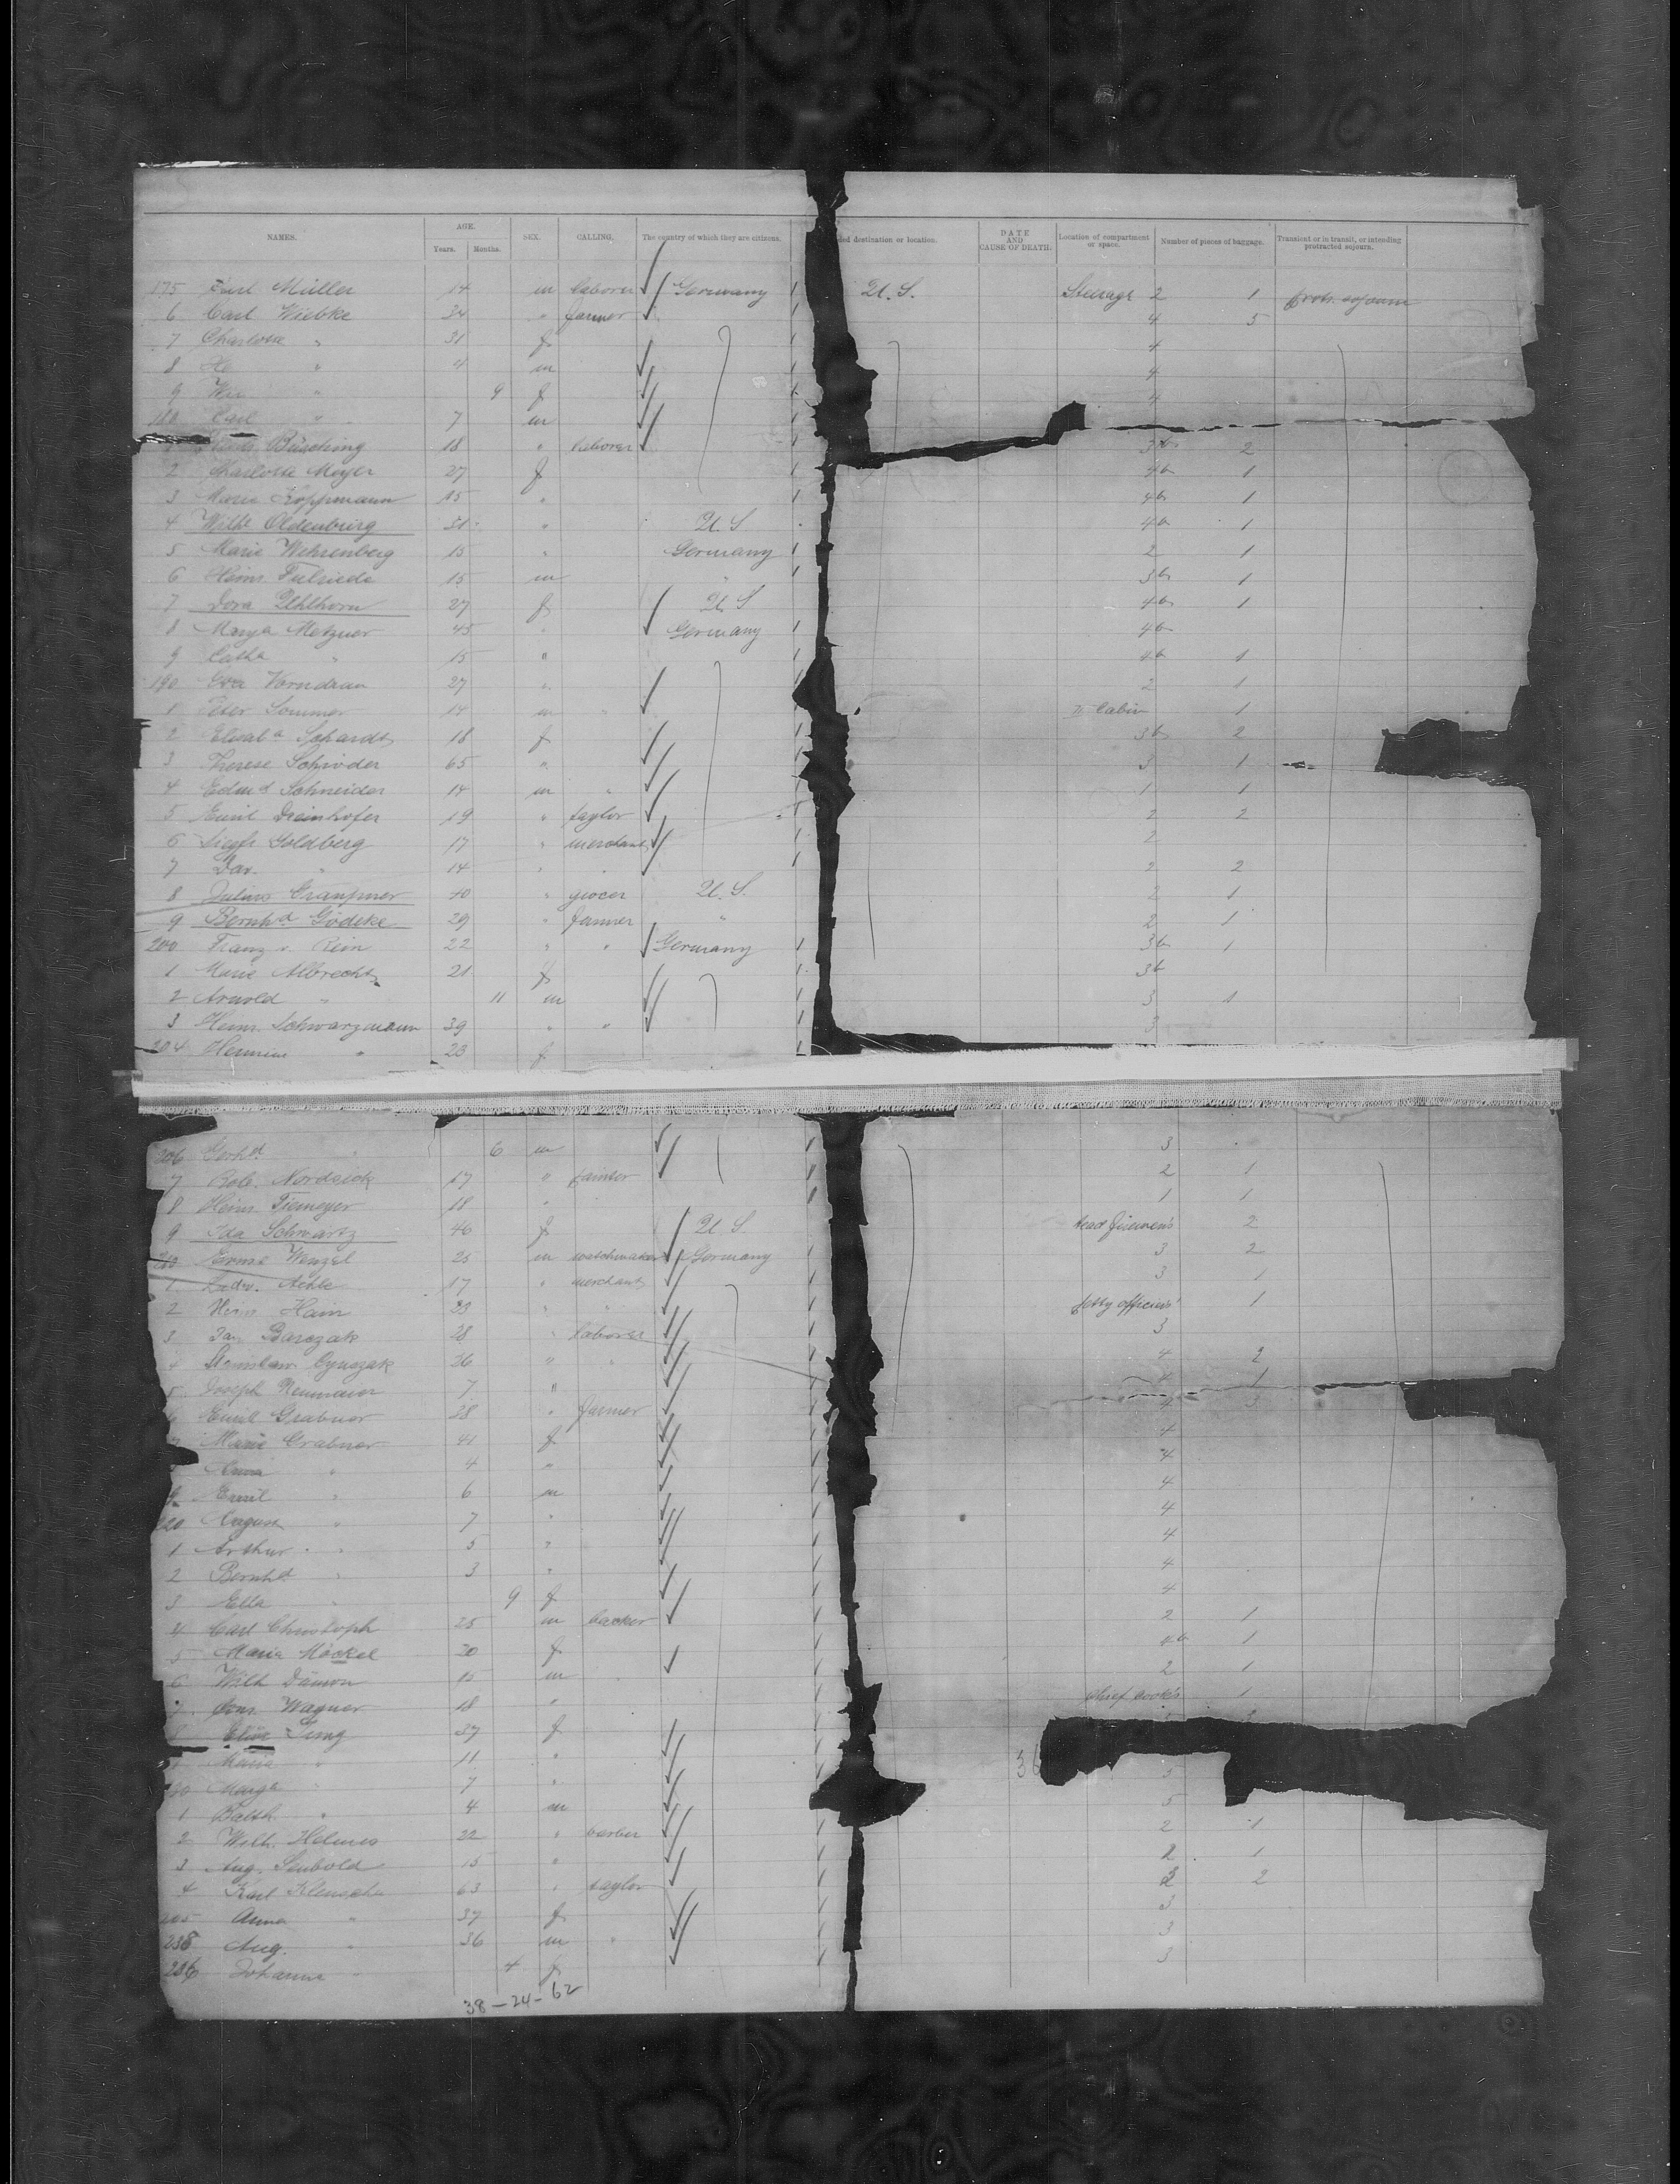 NAMES. AGE. Years. Months. SEX. CALLING. The country of which they are citizens. ded destination or location. DATE AND CAUSE OF DEATH. Location of compartment or space. Number of pieces of baggage. Transient or in transit, or intending protracted sojourn.
175 Müller 14 m laborer Germany U.S. Steerage 2 1 protr. sojourn
6 Carl Wiebke 34 " farmer 4 5
7 Charlotte " 31 f 4
8 He " 4 m 4
9 " 9 f 4
180 Carl " 7 m
Büsching 18 " laborer 3b 2
2 Charlotte Meyer 27 f 4b 1
3 Marie Koppmann 15 " 4b 1
4 Wilhe Oldenburg 31 " U.S 4b 1
5 Marie Wehrenberg 15 " Germany 2 1
6 Heinr. 15 m " 3b 1
7 Dora Uhlhorn 27 f U.S 4b 1
8 Metzner 45 " Germany 4b
9 Catha " 15 " 4b 1
190 Eva Vorndran 27 " 2 1
1 Peter Sommer 14 m " Cabin 1
2 Elisaba Schardt 18 f 3b 2
3 Therese Schröder 65 " 3 1
4 Edmd Schneider 14 m " 1 1
5 Emil Dreinhofer 19 " taylor 2 2
6 Siegfr Goldberg 17 " merchant 2
7 Dav. " 14 " 2 2
8 Julius 40 " grocer U.S. 2 1
9 Bernhd Gödeke 29 " farmer " 2 1
200 Franz v. Rein 22 " " Germany 3b 1
1 Marie Albrecht 21 f 3b
2 Arnold " 11 m 3 1
3 Heinr. Schwarzmann 39 " " 3
204 Hermine " 23 f
206 Gerhd. " 6 m 3
7 Rob. Nordsiek 17 " painter 2 1
8 Heinr. Tiemeyer 18 " 1 1
9 Ida Schwartz 46 f U.S head firemen's 2
210 Ernst Wenzel 25 m watchmaker Germany 3 2
1 Ludw. 17 " merchant 3 1
2 Heinr. Hain 23 " " petty officers' 1
3 Jan Barczak 28 " laborer 3
4 Stanislaw 26 " " 4 2
5 Joseph Neumaier 7 " 4 1
6 Emil Grabner 38 " farmer 4 3
7 Marie Grabner 41 f 4
Anna " 4 " 4
9 Emil " 6 m 4
220 August " 7 " 4
1 Arthur " 5 " 4
2 Bernhd " 3 " 4
3 Ella " 9 f 4
4 Carl Christoph 25 m backer 2 1
5 Maria Möckel 30 f 4b 1
6 Wilh Dämon 15 m 2 1
7 Wagner 18 " chief cook's 1
8 37 f
Maria " 11 " 36
230 Marga " 7 " 5
1 Balth. " 4 m 5
2 Wilh. Helmes 22 " barber 2 1
3 Aug. Seubold 15 " 2 1
4 Karl 63 " taylor 2 2
Anna " 37 f 3
238 Aug. " 36 m " 3
236 Johanna " 4 f 3
38-24-62